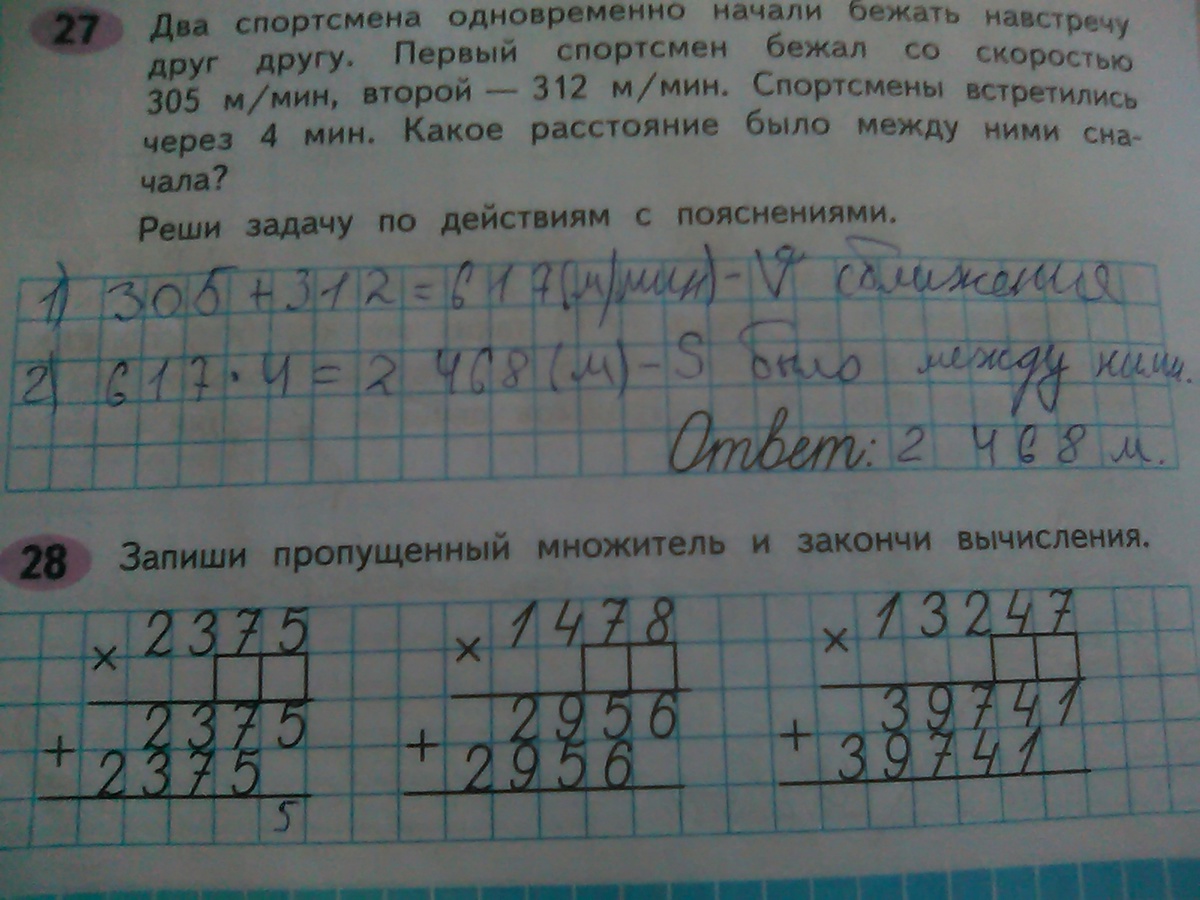 27 Два спортсмена одновременно начали бежать навстречу
друг другу. Первый спортсмен бежал со скоростью
305 м/мин, второй — 312 м/мин. Спортсмены встретились
через 4 мин. Какое расстояние было между ними сна-
чала?
Реши задачу по действиям с пояснениями.
1) 305+312=617(м/мин)-V сближения
2) 617·4=2 468(м)-S было между ними.
Ответ: 2 468 м.
28 Запиши пропущенный множитель и закончи вычисления.
× 2375 × 1478 × 13247
2375 2956 39741
+ + +
2375 2956 39741
5